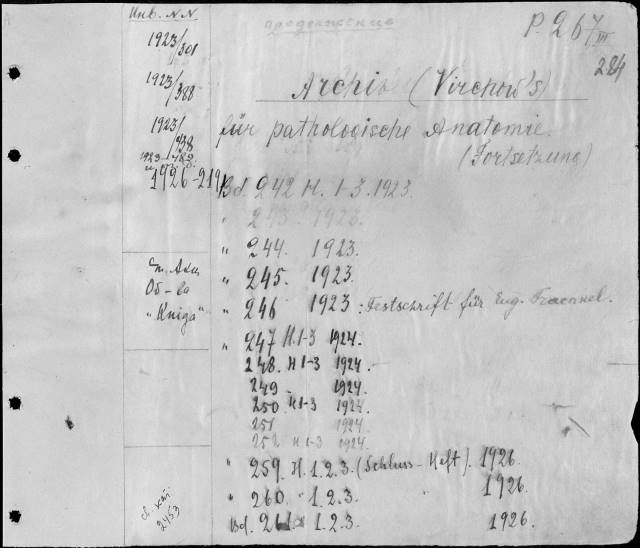 Инв. NN
1923/301
1923/388
1923/938
1923-1782
1926-219
от Акц.
Об-ва
"Книга"
продолжение
P. 267/III
284
Archiv (Virchow's)
für pathologische Anatomie.
(Fortsetzung)
Bd. 242 H. 1-3. 1923.
" 243. 1923.
" 244. 1923.
" 245. 1923.
" 246 1923: Festschrift für Eug. Fraenkel.
" 247 H. 1-3 1924.
248. H 1-3 1924.
249 1924.
250 H 1-3 1924.
251 1924.
252 H 1-3 1924.
" 259. H. 1. 2. 3. (Schluss-Heft). 1926.
" 260. " 1. 2. 3. " 1926.
Bd. 261. " 1. 2. 3. 1926.
2453